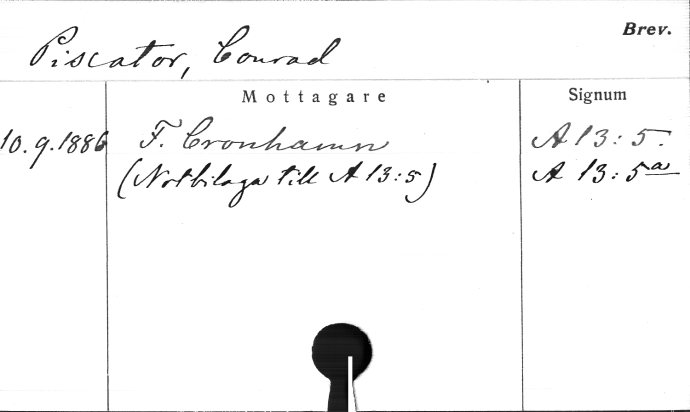 Brev.
Piscator, Conrad
Mottagare Signum
10.9.1886 F. Cronhamn A 13:5.
(Notbilaga till A 13:5) A 13:5a